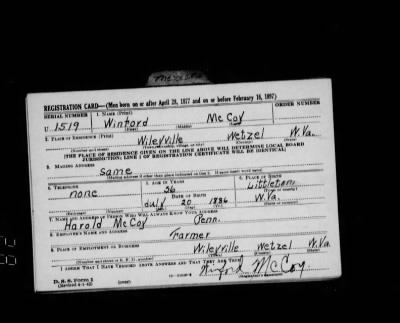 REGISTRATION CARD—(Men born on or after April 28, 1877 and on or before February 16, 1897)
SERIAL NUMBER 1. NAME (Print) ORDER NUMBER
U 1519 Winford McCoy
(First) (Middle) (Last)
2. PLACE OF RESIDENCE (Print)
Wileyville Wetzel W.Va.
(Number and street) (Town, township, village, or city) (County) (State)
[THE PLACE OF RESIDENCE GIVEN ON THE LINE ABOVE WILL DETERMINE LOCAL BOARD
JURISDICTION; LINE 2 OF REGISTRATION CERTIFICATE WILL BE IDENTICAL]
3. MAILING ADDRESS
same
[Mailing address if other than place indicated on line 2. If same insert word same]
4. TELEPHONE 5. AGE IN YEARS 6. PLACE OF BIRTH
none 56 Littleton
DATE OF BIRTH
July 20 1886 W.Va.
7. NAME AND ADDRESS OF PERSON WHO WILL ALWAYS KNOW YOUR ADDRESS
Harold McCoy Penn.
8. EMPLOYER'S NAME AND ADDRESS
Farmer
9. PLACE OF EMPLOYMENT OR BUSINESS
Wileyville Wetzel W.Va
(Number and street or R. F. D. number) (Town) (County) (State)
I AFFIRM THAT I HAVE VERIFIED ABOVE ANSWERS AND THAT THEY ARE TRUE.
D. S. S. Form 1
(Revised 4-1-42)
Winford McCoy